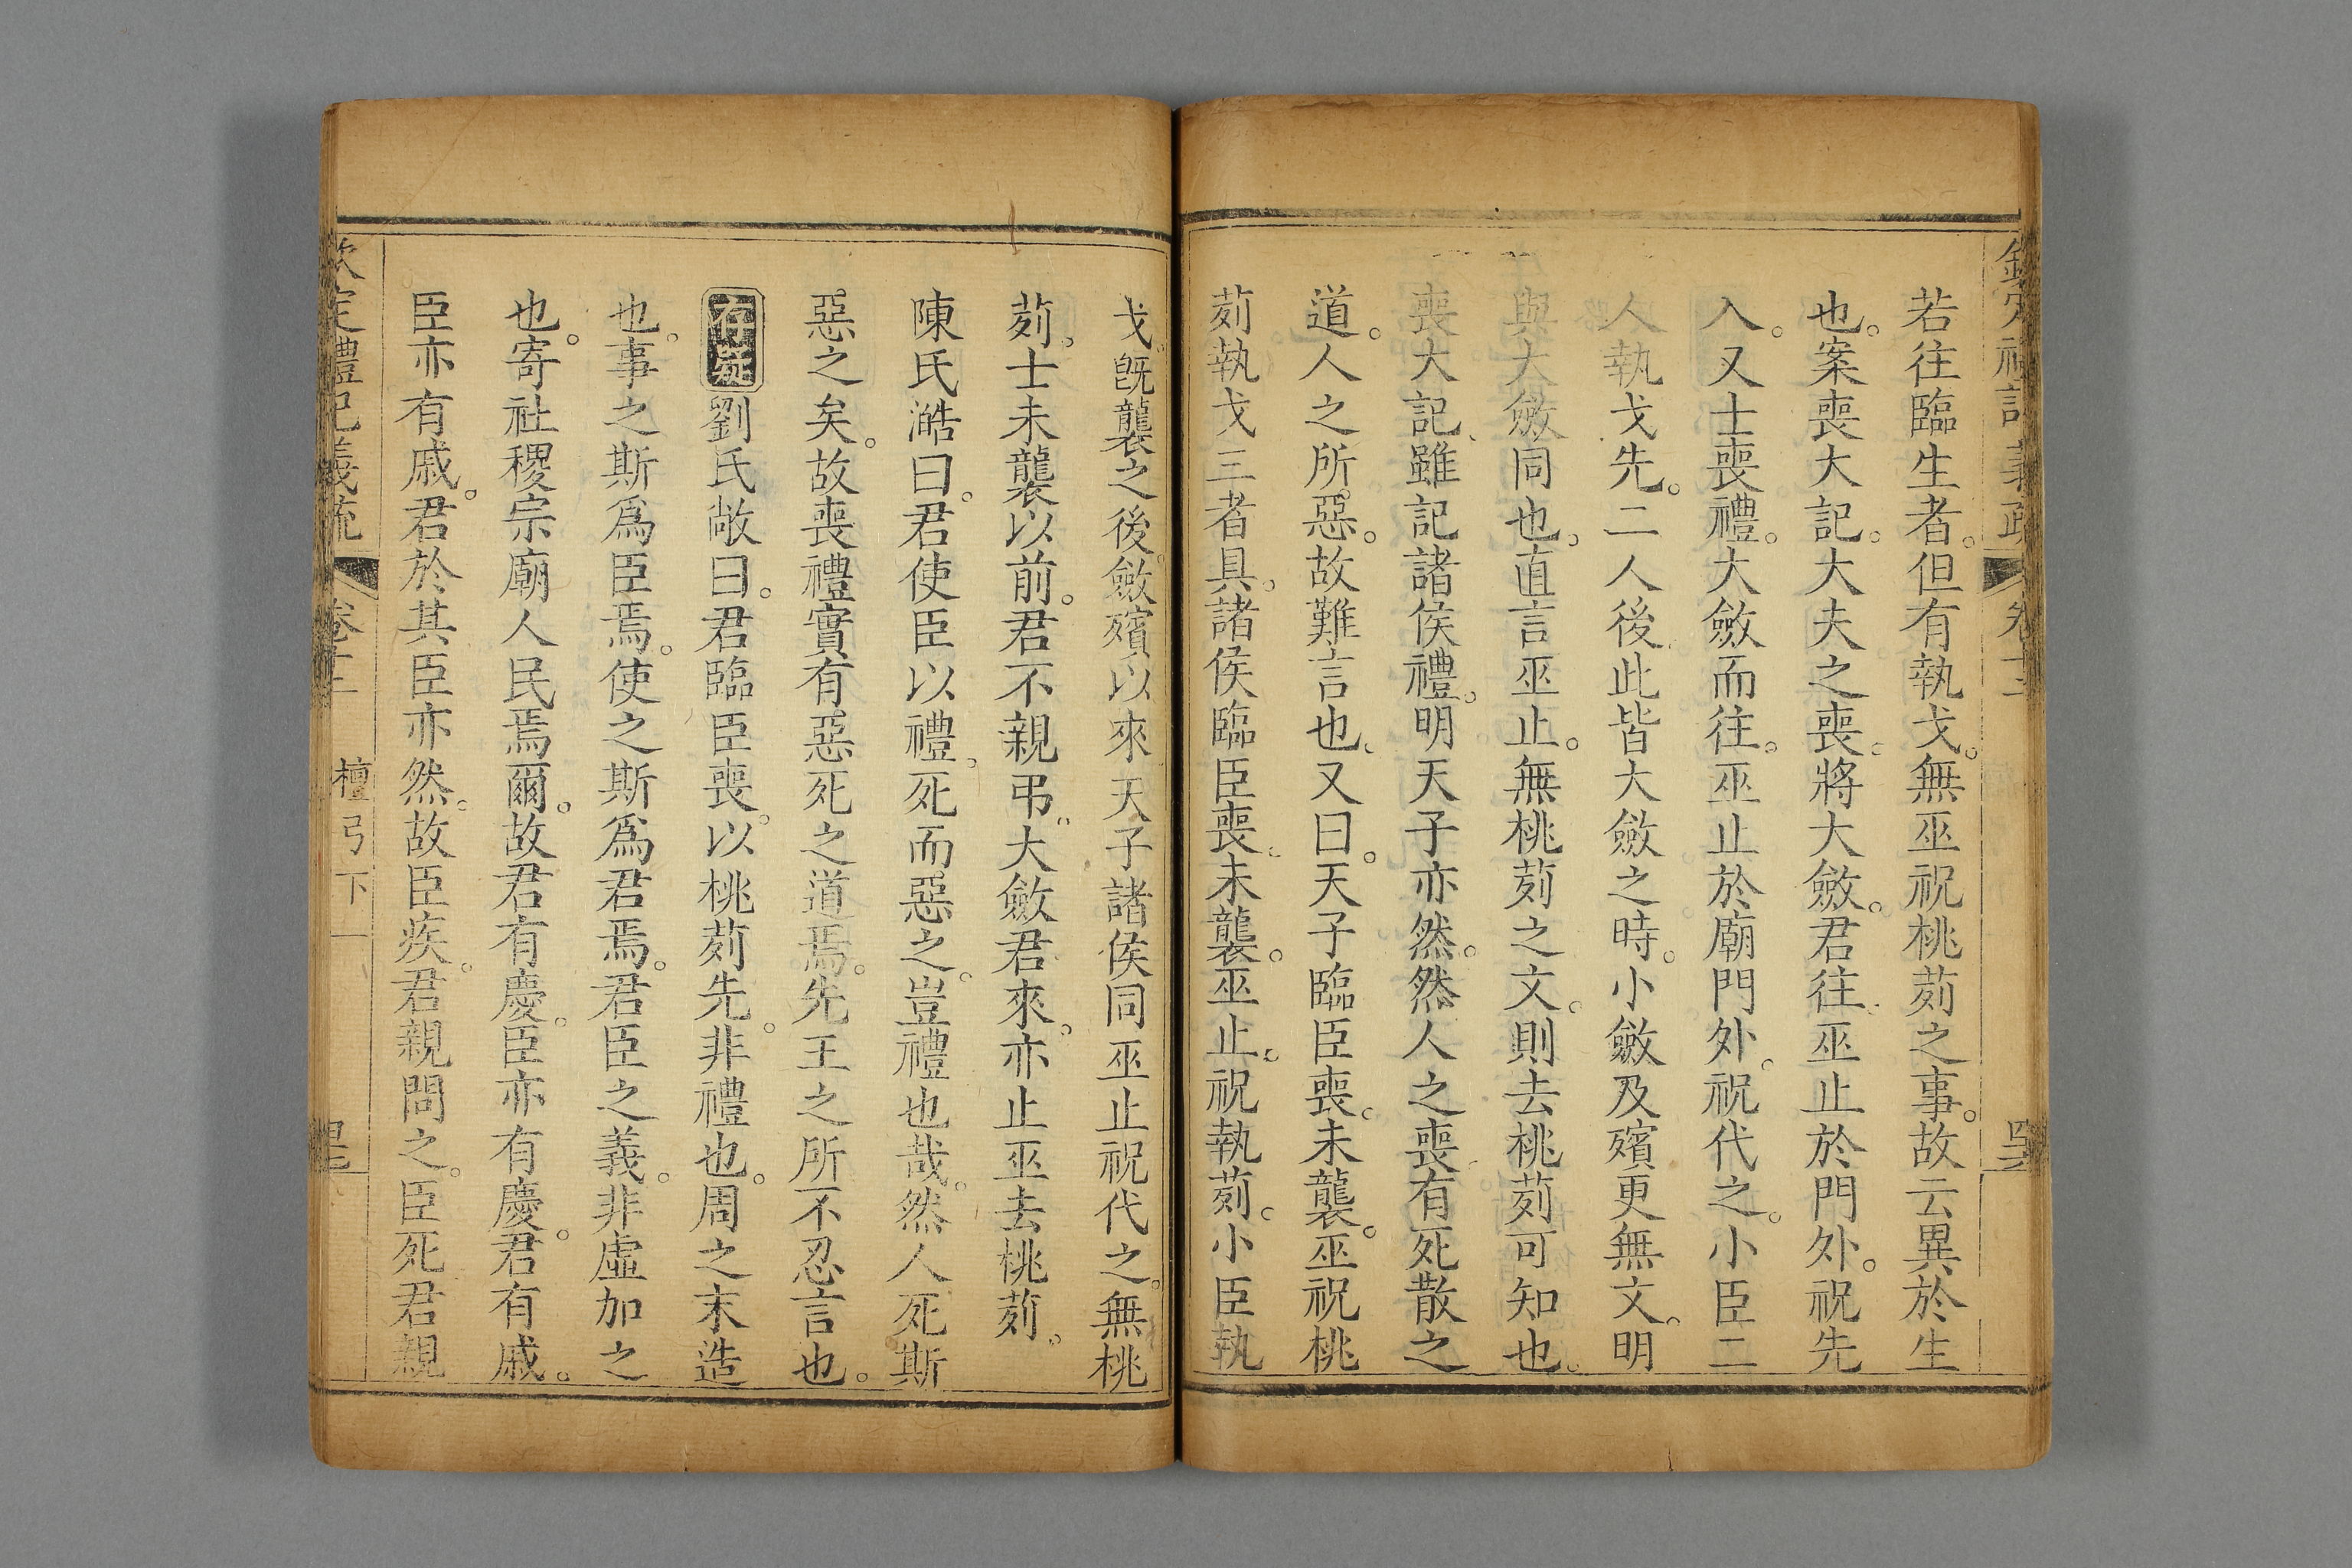 欽定禮記義疏 卷十二
若往臨生者。但有執戈。無巫祝桃茢之事。故云異於生
也。案喪大記。大夫之喪。將大斂。君往。巫止於門外。祝先
入。又士喪禮。大斂而往。巫止於廟門外。祝代之。小臣二
人執戈先。二人後此皆大斂之時。小斂及殯更無文。明
與大斂同也。直言巫止。無桃茢之文。則去桃茢可知也。
喪大記。雖記諸侯禮。明天子亦然。然人之喪有死散之
道。人之所惡。故難言也。又曰。天子臨臣喪。未襲。巫祝桃
茢執戈三者具。諸侯臨臣喪。未襲。巫止。祝執茢。小臣執
戈。既襲之後。斂殯以來天子諸侯同巫止祝代之。無桃
茢。士未襲以前。君不親弔。大斂君來。亦止巫去桃茢。
陳氏澔曰。君使臣以禮。死而惡之。豈禮也哉。然人死斯
惡之矣。故喪禮實有惡死之道焉。先王之所不忍言也。
存疑劉氏敞曰。君臨臣喪。以桃茢先。非禮也。周之末造
也。事之斯爲臣焉。使之斯爲君焉。君臣之義。非虛加之
也。寄社稷宗廟人民焉爾。故君有慶。臣亦有慶。君有戚。
臣亦有戚。君於其臣亦然。故臣疾。君親問之。臣死君親
欽定禮記義疏 卷十二 檀弓下一